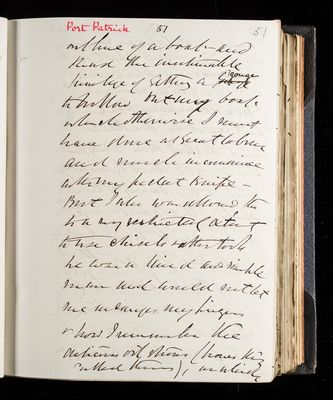 Port Patrick 51
51
outline of a boat - and
had the inestimable
privilege of getting a gouge
to hollow out my boat
which otherwise I must
have done at great labour
and much inconvenience
with my pocket knife -
But I also was allowed to
to a very restricted extent
to use chisels & other tools
he was a kind and
man and would not let
me my fingers
& how I remember the
oil stone (hones they
called them), on which